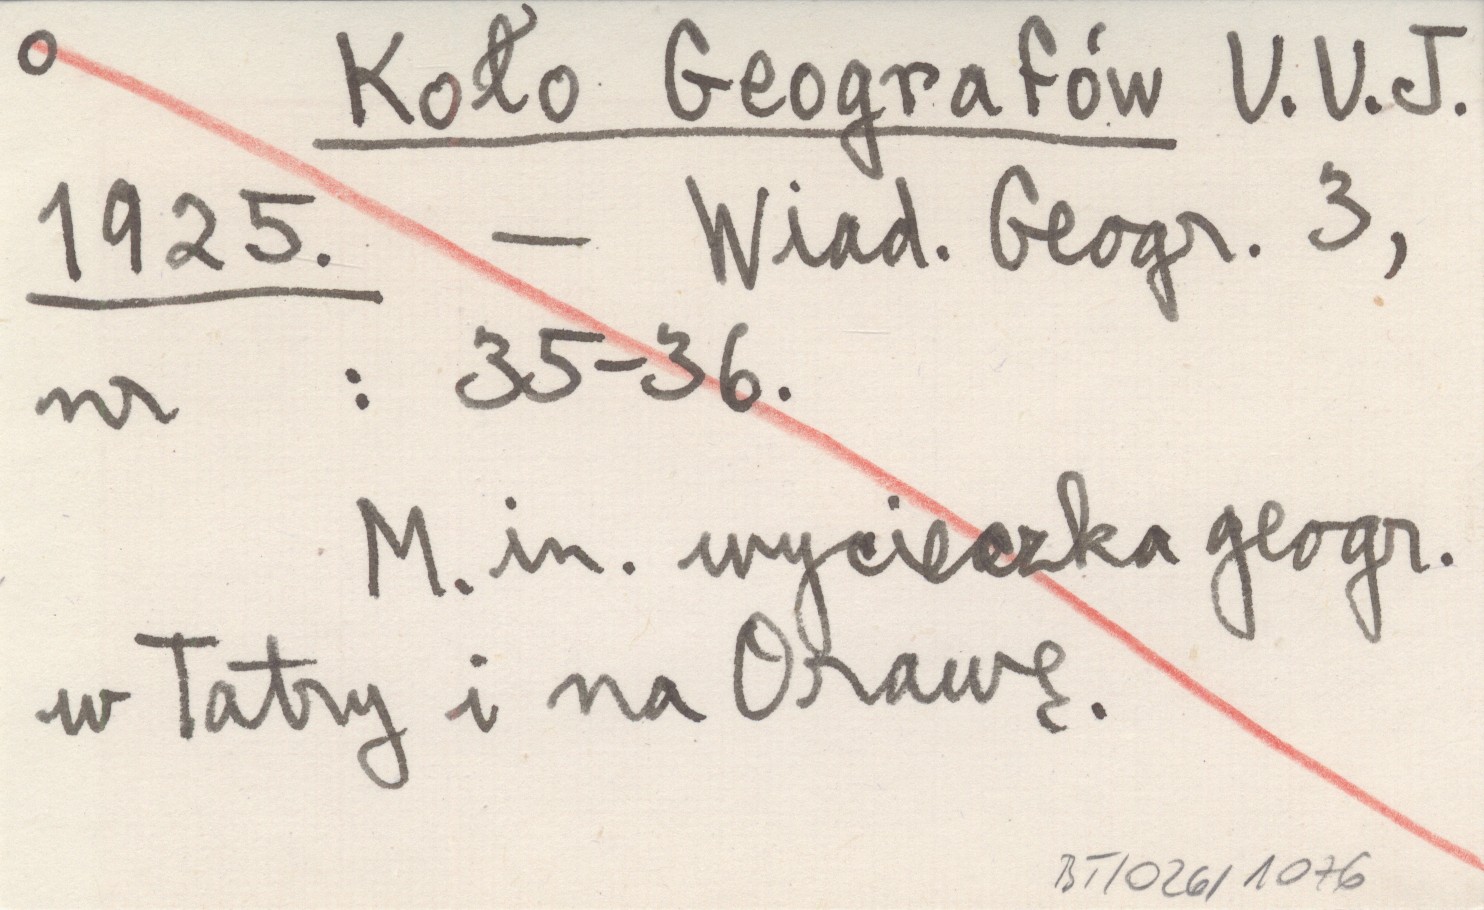 Koło Geografów U.U.J.
1925. — Wiad. Geogr. 3,
nr : 35-36.
M. in. wycieczka geogr.
w Tatry i na Orawę.
BT/026/1076